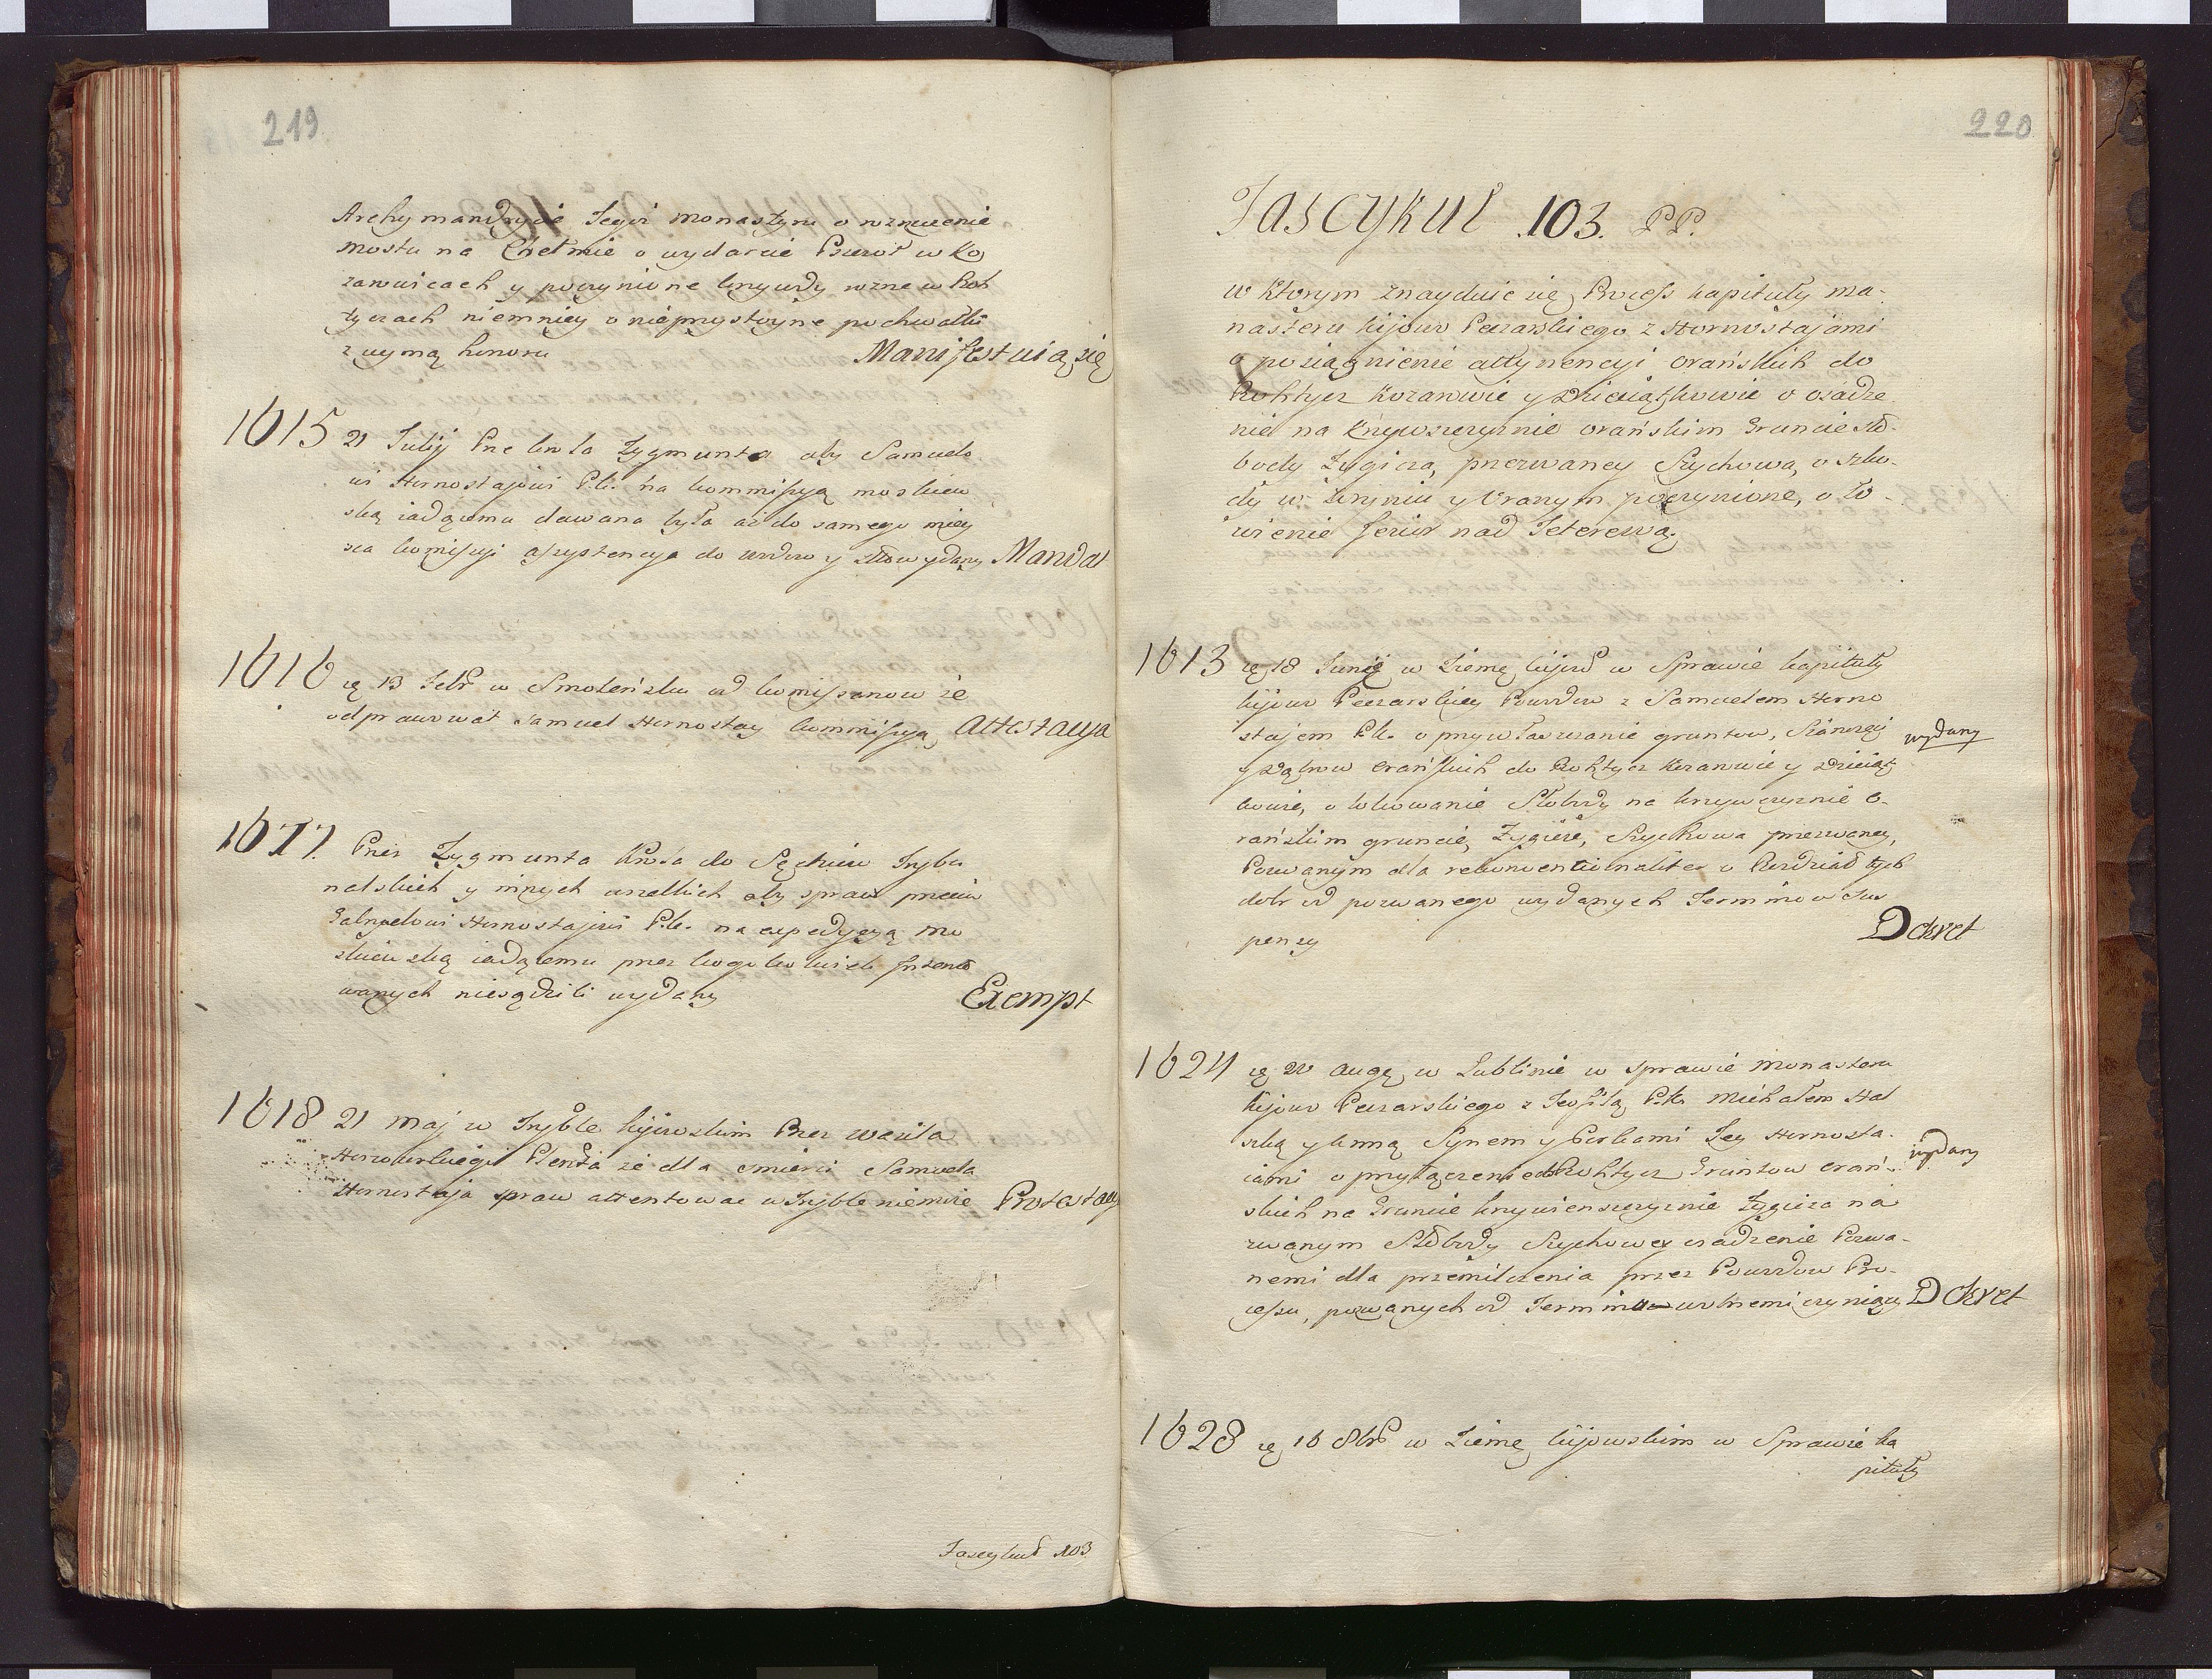 219
Archymandrycie Tegoż monastyru o rozrucenie
mostu na Chełmie o wydarcie Pszczoł w Ko
zarowicach y poczynione krzywdy rozne w Roh
tyczach niemniey o nieprzystoyne pochwałki
z uymą honoru Manifestuią się
1615 21 Julij Prze krola Zygmunta aby Samuelo
wi Hornostajowi P.k. na kommissyą moskiew
ską iadącemu dawana była aż do samego miey
sca komissyi assystencya do urzdow y słow ydany Mandat
1616 ię 13 Febr w Smoleńsku od komissarzow że
odprawował Samuel Hornostay kommissyą Attestacya
1617. Przez Zygmunta Krola do Sędziow Trybu
nalskich y innych wszelkich aby spraw przeciw
Gabryelowi Hornostajowi P.k. na expedycyą mo
skiewską iadącemu przez kogokolwiek
wanych niesądzili wydany Exempt
1618 21 maj w Tryble kijowskim Przez wasila
że dla śmierci Samuela
Hornostaja spraw attentować w Tryble niemoże Protestacya
Fascykuł 103
220
Fascykuł 103. PP.
w ktorym znayduie się Process kapituły ma-
nasteru kijow Peczarskiego z Hornostajami
o posiągnienie attynencyi orańskich do
Rohtycz Kozarowic y Dzieciątkowic o osadze
nie na Krzywszczyznie orańskim Gruncie Sło-
body Zygicza, przezwaney Szychowa, o szko-
dy w Zwiniu y Oranym poczynione, o ło-
wienie nad Teterewą.
1613 ię 18 Junij w Ziemę kijow w Sprawie kapituły
kijow Peczarskiey Powdow z Samuelem Horno
stajem P.k. o przywłaszczanie gruntow, Sianożęci
wydany
y Dąbrow orańskich do Rohtycz Kozarowic y Dzieciąt
kowic, o lokowanie Słobody na krzywczyznie o-
rańskim gruncie, Zygicze, Szychowa przezwaney,
Pozwanym dla rekonwentionaliter o Rozdział tych
dobr od pozwanego wydanych Terminow Sus
penzy Dekret
1624 ię 20 Augę w Lublinie w sprawie Monasteru
kijow Peczarskiego z Teofilą P.k. Michałem Hal
szką y Anną Synem y Corkami Iey Hornosta-
iami o przyłączenie do Rohtycz Gruntow orań-
wydany
skich na Gruncie krzywieńszczyznie Zygicza na
zwanym Słobody Szychowey osadzenie Pozwa-
nemi dla przemilczenia przez Powodow Pro-
cessu, pozwanych od Terminu wolnemi czyniący Dekret
1628 ię 16 8br w Ziemę kijowskim w Sprawie ka
pituły